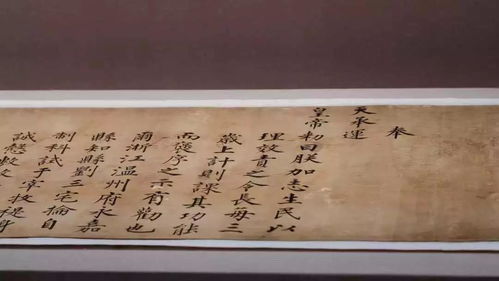 奉
天承運
皇帝敕曰朕加志生民以
理效責之令長每三
歲上計則課其功能
而褒序之示有勸也
爾浙江溫州府永嘉
縣知縣劉三宅掄自
制科試于宰牧褆身
誠慤敷